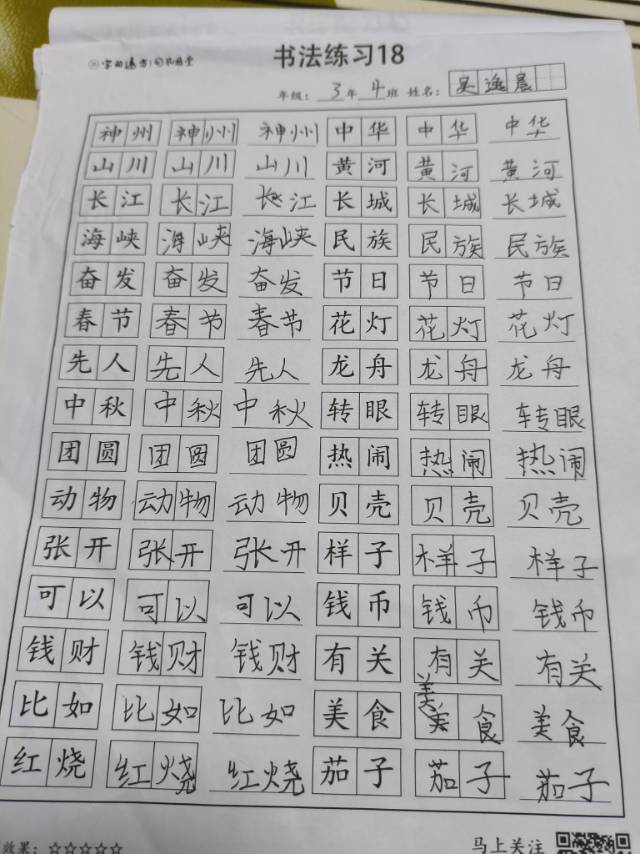 书法练习18
年级：3年4班 姓名：吴逸晨
神州 神州 神州 中华 中华 中华
山川 山川 山川 黄河 黄河 黄河
长江 长江 长江 长城 长城 长城
海峡 海峡 海峡 民族 民族 民族
奋发 奋发 奋发 节日 节日 节日
春节 春节 春节 花灯 花灯 花灯
先人 先人 先人 龙舟 龙舟 龙舟
中秋 中秋 中秋 转眼 转眼 转眼
团圆 团圆 团圆 热闹 热闹 热闹
动物 动物 动物 贝壳 贝壳 贝壳
张开 张开 张开 样子 样子 样子
可以 可以 可以 钱币 钱币 钱币
钱财 钱财 钱财 有关 有关 有关
比如 比如 比如 美食 美美食 美食
红烧 红烧 红烧 茄子 茄子 茄子
效果：☆☆☆☆☆ 马上关注